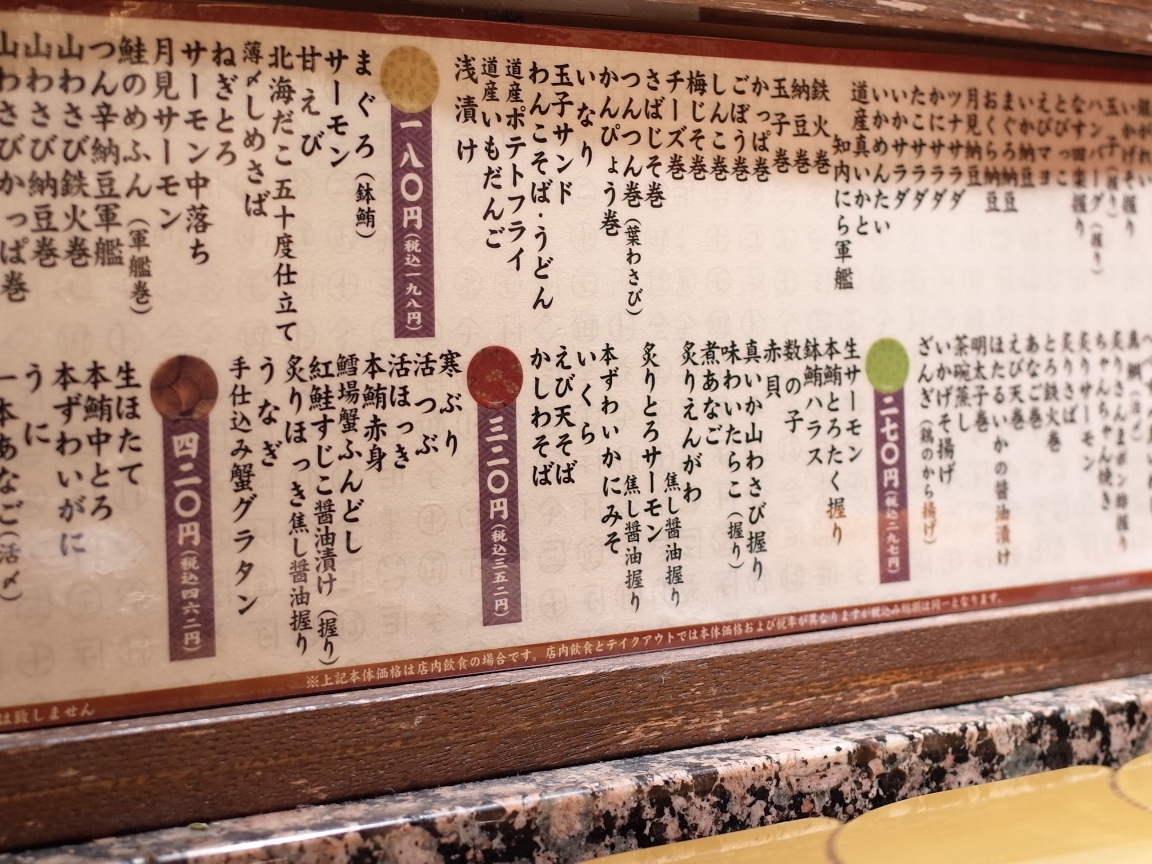 ハンバーグ(握り)
なす田楽握り
とびっこ
えびマヨ
いか納豆
まぐろ納豆
おくら納豆
月見納豆
ツナサラダ
かにサラダ
たこサラダ
いかサラダ
いかめんたい
道産真いかと
知内にら軍艦
鉄火巻
納豆巻
玉子巻
かっぱ巻
ごぼう巻
しんこ巻
梅じそ巻
チーズ巻
さばじそ巻
つんつん巻(葉わさび)
かんぴょう巻
いなり
玉子サンド
わんこそば・うどん
道産ポテトフライ
道産いもだんご
浅漬け
一八〇円(税込一九八円)
まぐろ(鉢鮪)
サーモン
甘えび
北海だこ五十度仕立て
薄〆しめさば
ねぎとろ
サーモン中落ち
月見サーモン
鮭のめふん(軍艦巻)
つん辛納豆軍艦
山わさび鉄火巻
山わさび納豆巻
山わさびかっぱ巻
炙りさんまポン酢握り
ちゃんちゃん焼き
炙りサーモン
炙りさば
とろ鉄火巻
あなご巻
えび天巻
ほたるいかの醤油漬け
明太子巻
茶碗蒸し
いかげそ揚げ
ざんぎ(鶏のから揚げ)
二七〇円(税込二九七円)
生サーモン
本鮪とろたく握り
鉢鮪ハラス
数の子
赤貝
真いか山わさび握り
味わいたらこ(握り)
煮あなご
炙りえんがわ
焦し醤油握り
炙りとろサーモン
焦し醤油握り
本ずわいかにみそ
いくら
えび天そば
かしわそば
三二〇円(税込三五二円)
寒ぶり
活つぶ
活ほっき
本鮪赤身
鱈場蟹ふんどし
紅鮭すじこ醤油漬け(握り)
炙りほっき焦し醤油握り
うなぎ
手仕込み蟹グラタン
四二〇円(税込四六二円)
生ほたて
本鮪中とろ
本ずわいがに
うに
一本あなご(活〆)
※上記本体価格は店内飲食の場合です。店内飲食とテイクアウトでは本体価格および税率が異なりますが税込み総額は同一となります。
は致しません